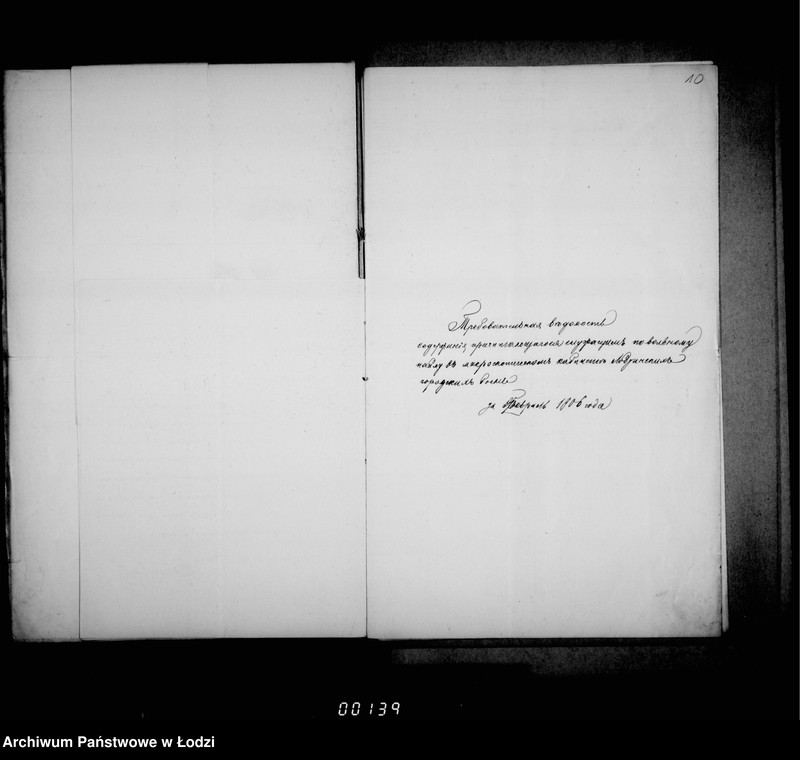 10
Требовательная ведомость
содержанія причитающагося служащимъ по вольному
найму въ микроскопическомъ кабинетѣ Лодзинскихъ
городскихъ боенъ
за Февраль 1906 года
00139
Archiwum Państwowe w Łodzi